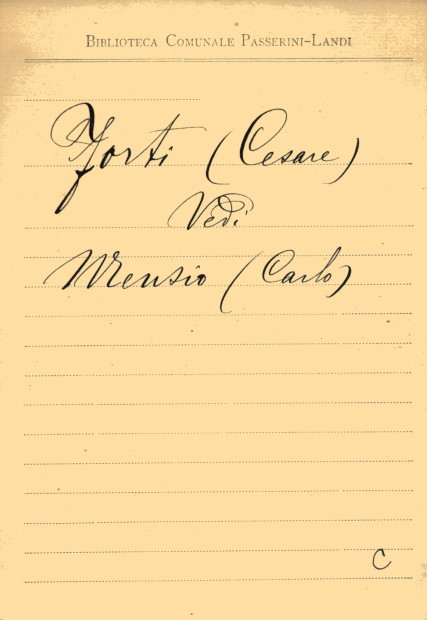 BIBLIOTECA COMUNALE PASSERINI-LANDI
Forti (Cesare)
Vedi
Mensio (Carlo)
C